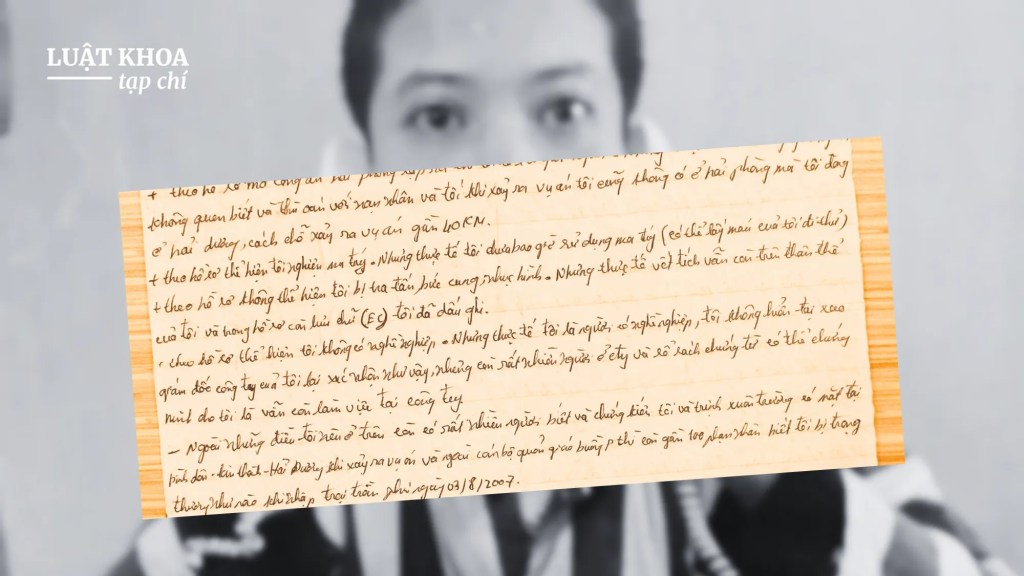 LUẬT KHOA
tạp chí
không quen biết và thù oán với nạn nhân và tôi khi xảy ra vụ án tôi cũng không có ở hải phòng mà tôi đang
ở hải dương, cách chỗ xảy ra vụ án gần 40KN.
+ theo hồ sơ thể hiện tôi nghiện ma túy. Nhưng thực tế tôi chưa bao giờ sử dụng ma túy (có thể lấy máu của tôi đi thử)
+ theo hồ sơ không thể hiện tôi bị tra tấn bức cung, nhục hình. Nhưng thực tế vết tích vẫn còn trên thân thể
của tôi và trong hồ sơ còn lưu chữ (EC) tôi đã dấu ghi.
theo hồ sơ thể hiện tôi không có nghề nghiệp. Nhưng thực tế tôi là người có nghề nghiệp, tôi không hiểu tại sao
giám đốc công ty của tôi lại xác nhận như vậy, nhưng còn rất nhiều người ở cty và sổ sách chứng từ có thể chứng
minh do tôi là vẫn còn làm việc tại công ty
— Ngoài những điều tôi nêu ở trên còn có rất nhiều người biết và chứng kiến tôi và trịnh xuân trường có mặt tại
- Hải Dương khi xảy ra vụ án và ngoài cán bộ quản giáo buồng p thì còn gần 100 phạm nhân biết tôi bị trọng
thương như nào khi nhập trại trần phú ngày 03/8/2007.